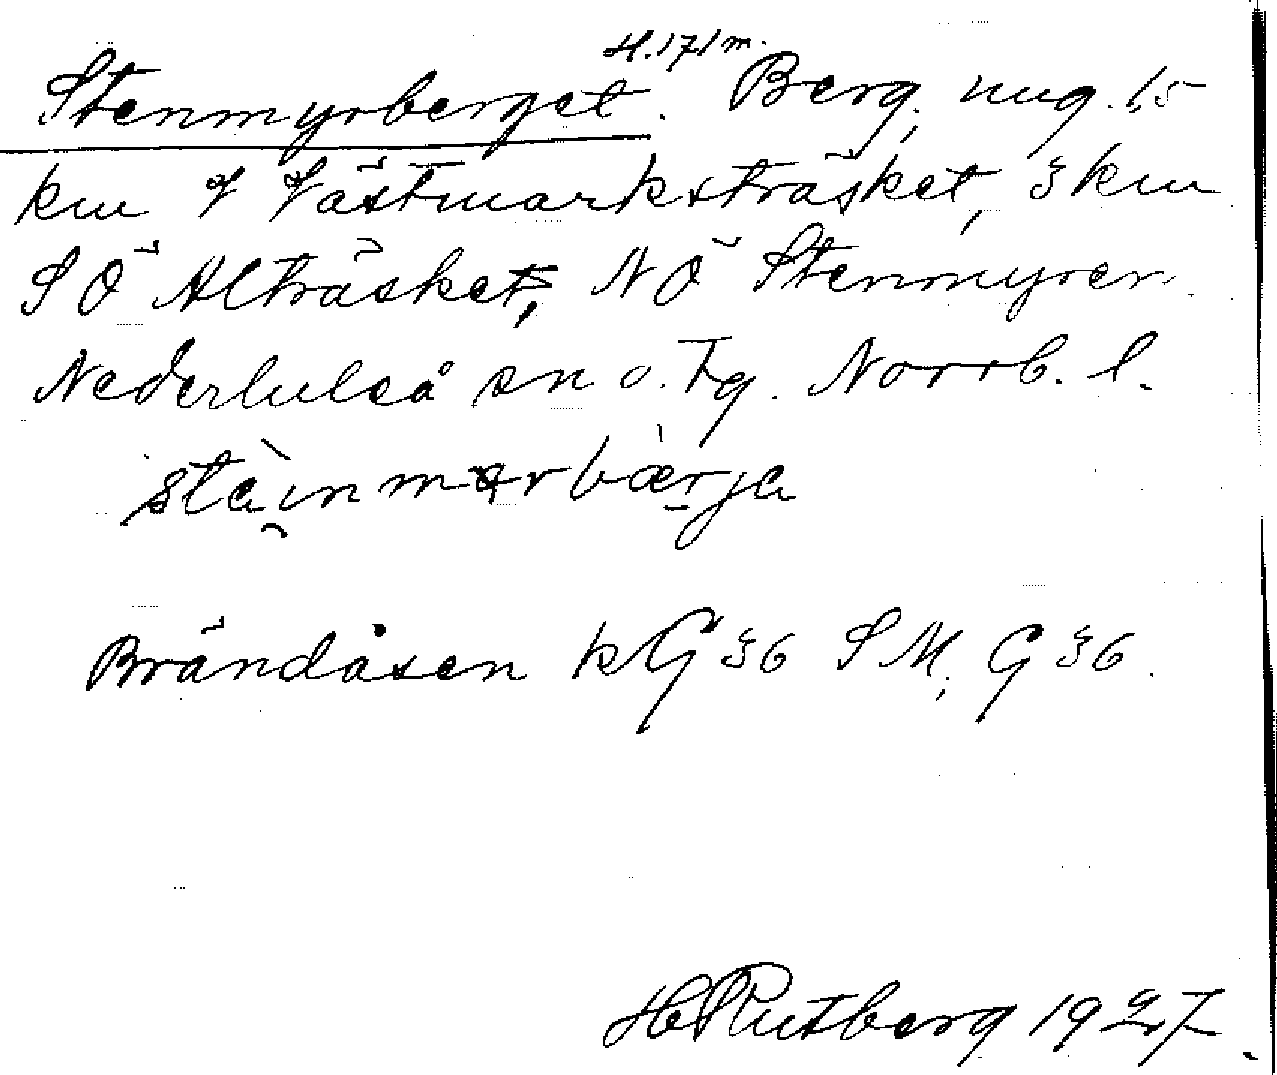 Stenmyrberget. H. 171 m. Berg, ung. 15
km V Västmarksträsket, 3 km
SÖ Alträsket, NÖ Stenmyren.
Nederluleå sn o. Tg. Norrb. l.
Brändåsen kG 36 SM, G 36.
H Rutberg 1927.